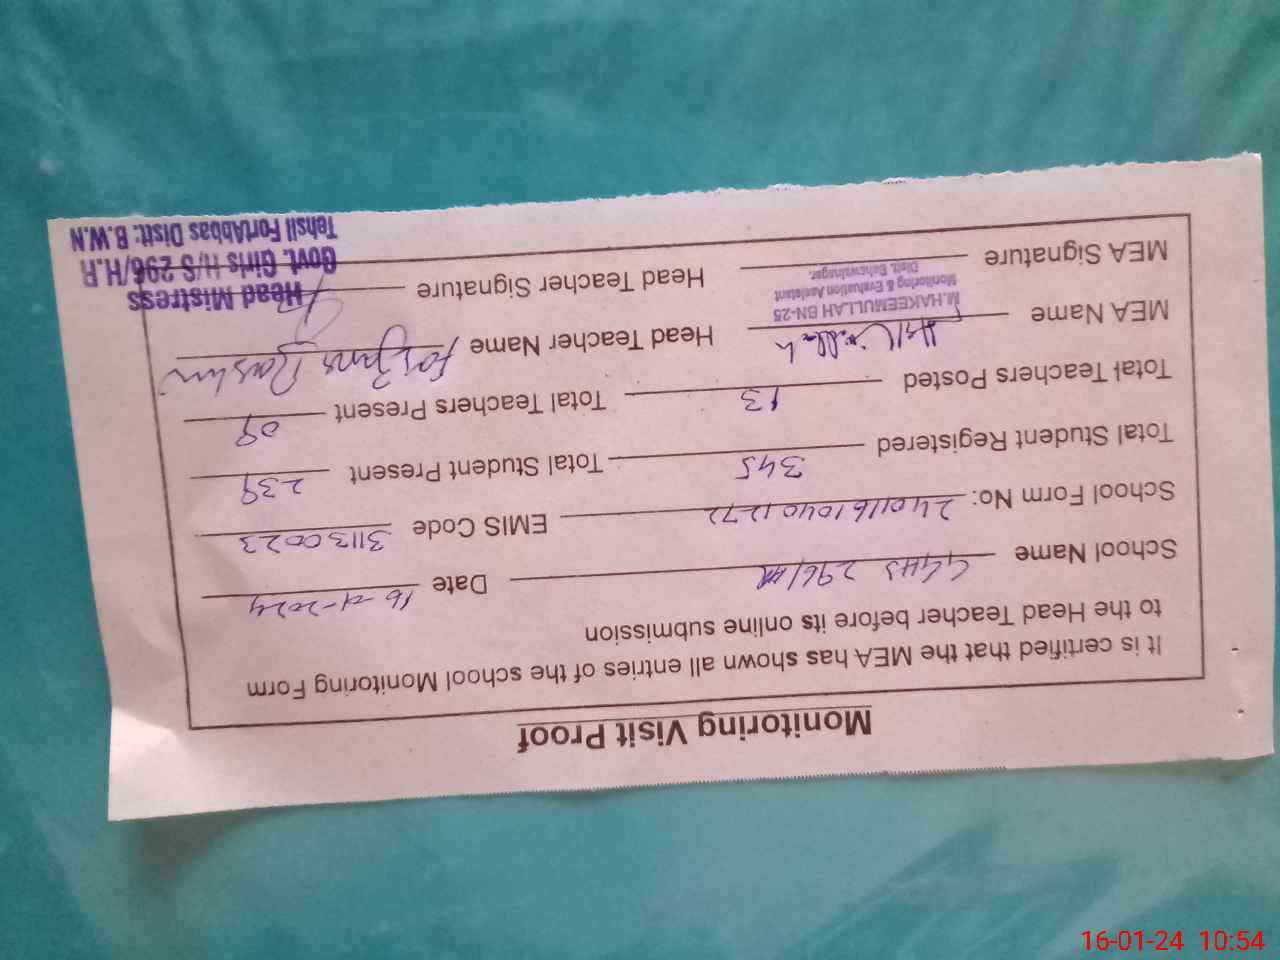 Monitoring Visit Proof
It is certified that the MEA has shown all entries of the school Monitoring Form
to the Head Teacher before its online submission
School Name GGHS 296/HR Date 16-01-2024
School Form No: 24011610401272 EMIS Code 31130023
Total Student Registered 345 Total Student Present 239
Total Teachers Posted 13 Total Teachers Present 09
MEA Name Head Teacher Name
M.HAKEEMULLAH BN-25
Monitoring & Evaluation Assistant
Distt. Bahawalnagar.
MEA Signature Head Teacher Signature
Head Mistress
Govt. Girls H/S 296/H.R
Tehsil FortAbbas Distt: B.W.N
16-01-24 10:54